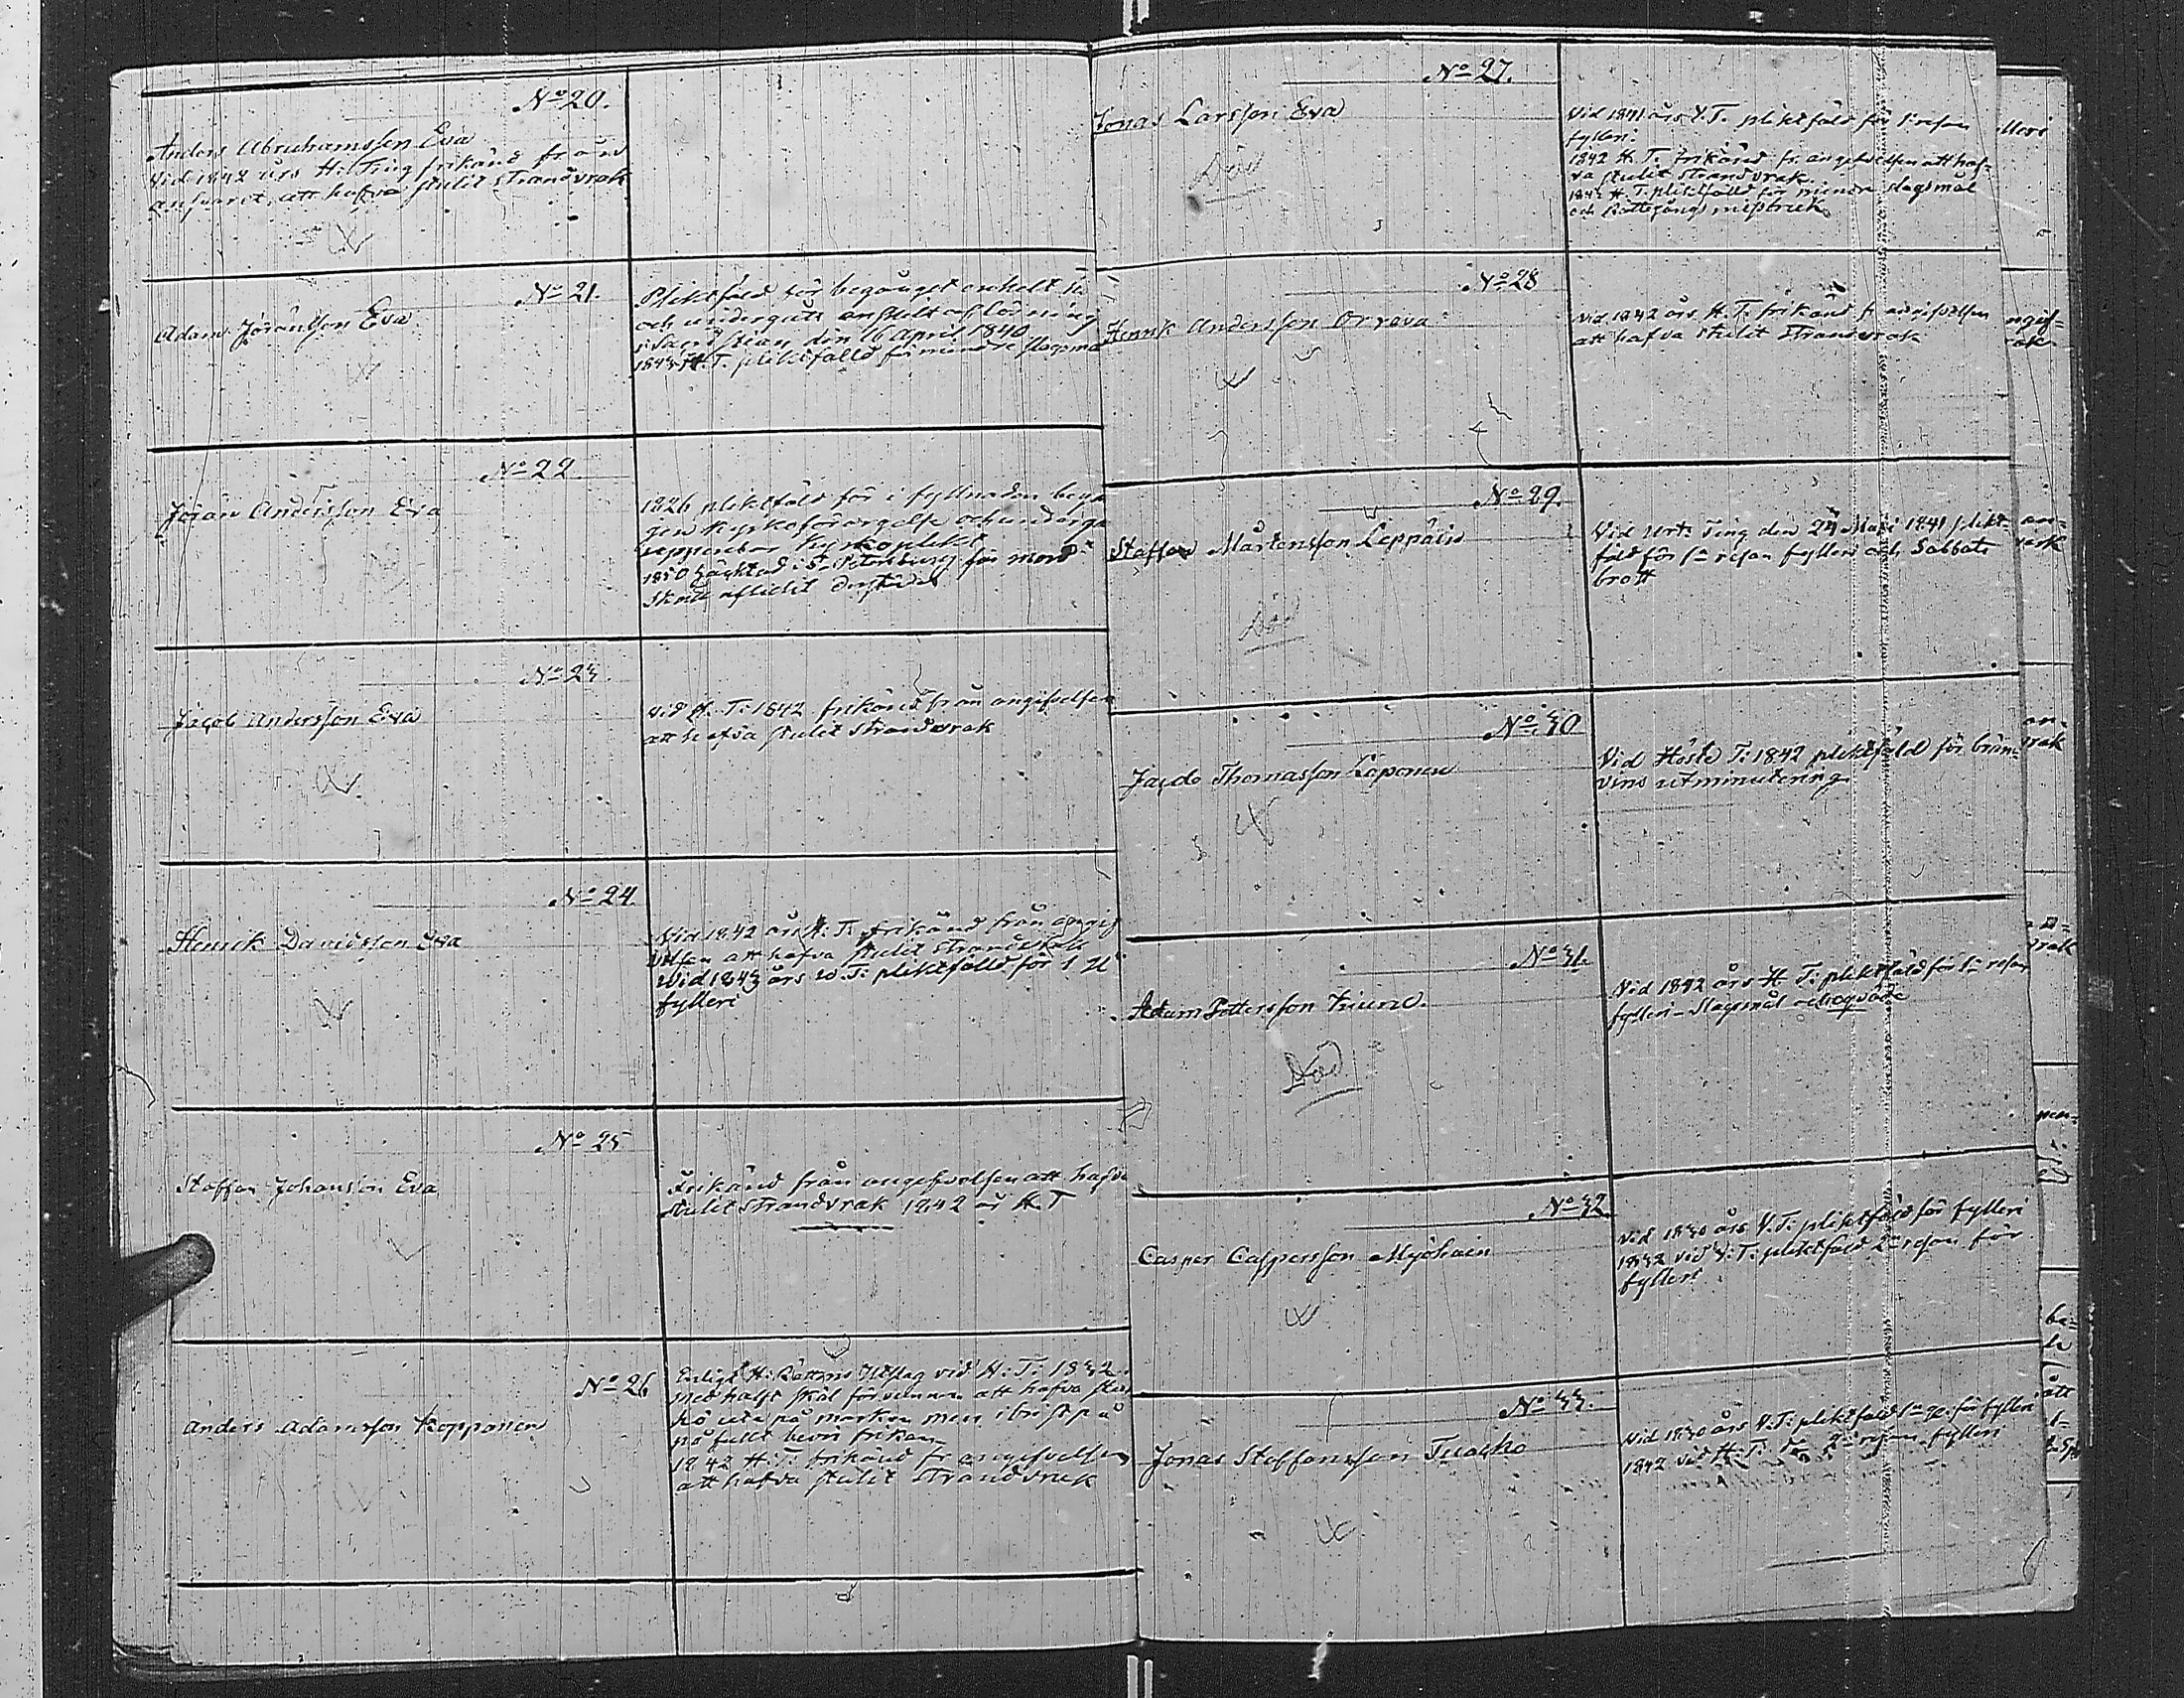 No 20.
Anders Abrahamsson Eva
Vid 1842 års H: Ting frikänd från
ansvaret, att hafva stulit strandvrak
No 21.
Adam Jöransson Eva
Pliktfäld för begånget enkelt
och undergått enskilt aflösning
i Sacristian den 16 April 1840
1843 H. T. pliktfälld för mindre slagsmål
No 22
Jöran Andersson Eva
1826 pliktfäld för i fyllnaden
kyrkoförargelse och
uppenbar kyrkoplikt
1850 häktad i St Petersburg för mord
Skall aflidit derstädes
No 23.
Jacob Andersson Eva
Vid H. T: 1842 frikänd från angifvelsen
att hafva stulit strandvrak
No 24
Henrik Davidsson Eva
Vid 1842 års H: T: frikänd från angif
velsen att hafva stulit strandvrak
Vid 1843 års W. T: pliktfälld för 1
fylleri
No 25
Staffan Johansson Eva
Frikänd från angifvelsen att hafva
stulit strandvrak 1842 års H. T
No 26
Anders Adamsson Kopponen
Enligt H: Rättens Utslag vid H: T: 1832
med halft skäl förvunnen att hafva
hö ute på marken men i brist på
på fullt bevis frikän
1842 H. T: frikänd fr angifvelsen
att hafva stulit strandvrak
No 27.
Jonas Larsson Eva
Död
Vid 1841 års V. T. pliktfäld för 1 resan
fylleri:
1842 H. T. frikänd fr. angifvelsen att haf-
va stulit strandvrak.
1843 H. T. pliktfälld för mindre slagsmål
och Rättegångs missbruk
No 28
Henrik Andersson Orvava
Vid 1842 års H. T: frikänd fr angifvelsen
att hafva stulit strandvrak
No 29.
Staffan Mårtensson Leppäin
Död
Vid Urt: Ting den 24 Mars 1841 plikt-
fäld för 1a resan fylleri och Sabbats
brott
No 30
Thomasson Loponen
Vid Höste T: 1842 pliktfäld för brän-
vins utminutering
No 31.
Adam Pettersson
Död
Vid 1842 års H T: pliktfäld för 1a resan
fylleri - slagsmål och oqväde
No 32
Casper Caspersson Myöhäin
Vid 1830 års V. T: pliktfäld för fylleri
1832 vid V: T: pliktfäld 2a resan för
fylleri
No 33.
Jonas Staffansson Tuocko
Vid 1830 års V. T: pliktfäld 1a för fylleri
1842 vid H: T: 2a resan fylleri